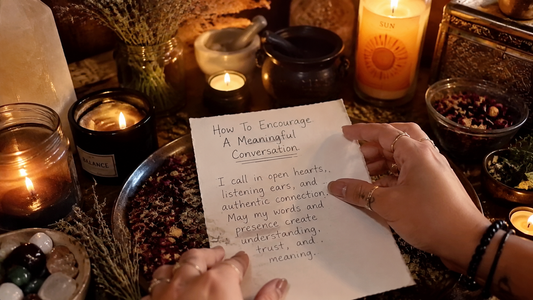 SUN
BALANCE
How To Encourage
A Meaningful
Conversation
I call in open hearts,
listening ears, and
authentic connection.
May my words and
presence create
understanding,
trust, and
meaning.